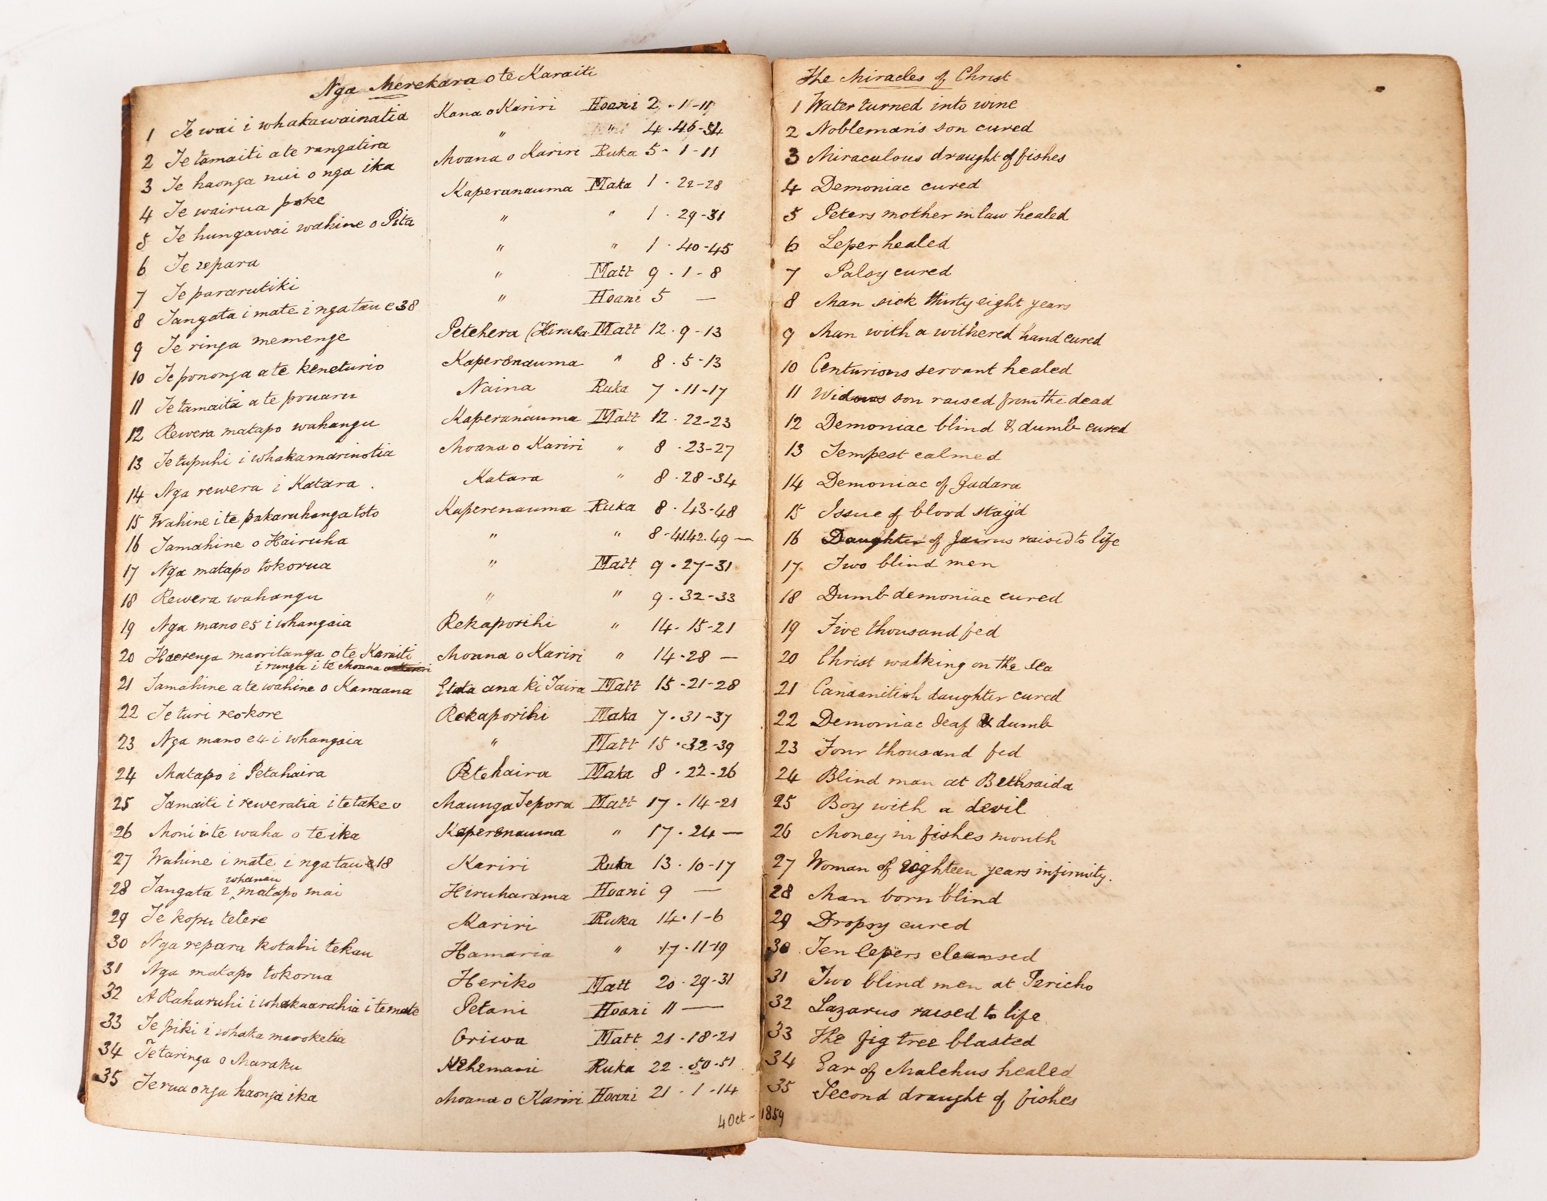 Nga Merekara o te Karaiti
1 Te wai i whakawainatia Kana o Kariri Hoani 2 . 1-11
2 Te tamaiti a te rangatira " " 4 . 46-54
3 Te haonga nui o nga ika Moana o Kariri Ruka 5 - 1-11
4 Te wairua poke Kaperanauma Maka 1 . 22-28
5 Te hungawai wahine o Pita " " 1 . 29-31
6 Te repara " " 1 . 40-45
7 Te pararutiki " Matt 9 . 1-8
8 Tangata i mate i nga tau e 38 " Hoani 5 —
9 Te ringa memenge Petehera (Hiruha Matt 12 . 9-13
10 Te pononga a te keneturio Kaperenauma " 8 . 5-13
11 Te tamaiti a te pouaru Naina Ruka 7 . 11-17
12 Rewera matapo wahangu Kaperanauma Matt 12 . 22-23
13 Te tupuhi i whakamarinotia Moana o Kariri " 8 . 23-27
14 Nga rewera i Katara . Katara " 8 . 28-34
15 Wahine i te pakaruhanga toto Kaperenauma Ruka 8 . 43-48
16 Tamahine o Hairuha " " 8 - 41.42.49 —
17 Nga matapo tokorua " Matt 9 . 27-31
18 Rewera wahangu " " 9 . 32-33
19 Nga mano e5 i whangaia Rekaporihi " 14 . 15-21
20 Haerenga maoritanga o te Karaiti Moana o Kariri " 14 . 28 —
i runga i te Moana
21 Tamahine a te wahine o Kanaana ana ki Taira Matt 15 - 21-28
22 Te turi reokore Rekaporihi Maka 7 . 31-37
23 Nga mano e4 i whangaia " Matt 15 . 32-39
24 Matapo i Petahaira Petehaira Maka 8 . 22-26
25 Tamaiti i reweratia i te take o Maunga Tepora Matt 17 . 14-21
26 Moni i te waha o te ika Kaperenauma " 17 . 24 —
27 Wahine i mate i nga tau e18 Kariri Ruka 13 . 10-17
28 Tangata i whanau matapo mai Hiruharama Hoani 9 —
29 Te kopu tetere Kariri Ruka 14 . 1-6
30 Nga repara kotahi tekau Hamaria " 17 . 11-19
31 Nga matapo tokorua Heriko Matt 20 . 29-31
32 A Raharuhi i whakaarahia i te mate Petani Hoani 11 —
33 Te piki i whaka maroketia Oriwa Matt 21 . 18-21
34 Te taringa o Maraku Kehemani Ruka 22 . 50-51
35 Te rua o nga haonga ika Moana o Kariri Hoani 21 . 1-14
4 Oct - 1859
The Miracles of Christ
1 Water turned into wine
2 Nobleman's son cured
3 Miraculous draught of fishes
4 Demoniac cured
5 Peters mother in law healed
6 Leper healed
7 Palsy cured
8 Man sick thirty eight years
9 Man with a withered hand cured
10 Centurions servant healed
11 Widows son raised from the dead
12 Demoniac blind & dumb cured
13 Tempest calmed
14 Demoniac of Gadara
15 Issue of blood stay'd
16 Daughter of Jairus raised to life
17 Two blind men
18 Dumb demoniac cured
19 Five thousand fed
20 Christ walking on the sea
21 Canaanitish daughter cured
22 Demoniac deaf & dumb
23 Four thousand fed
24 Blind man at Bethsaida
25 Boy with a devil
26 Money in fishes mouth
27 Woman of eighteen years infirmity.
28 Man born blind
29 Dropsy cured
30 Ten lepers cleansed
31 Two blind men at Jericho
32 Lazarus raised to life
33 The fig tree blasted
34 Ear of Malchus healed
35 Second draught of fishes